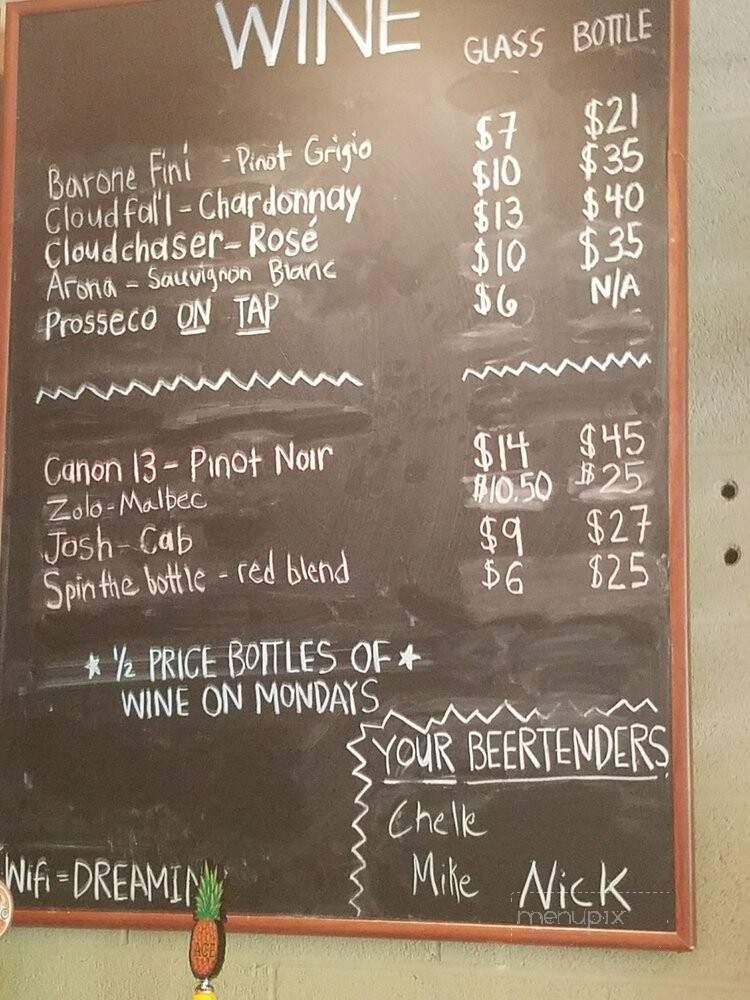 WINE GLASS BOTTLE
Barone Fini - Pinot Grigio $7 $21
Cloudfal'l - Chardonnay $10 $35
Cloudchaser - Rosé $13 $40
Arona - Sauvignon Blanc $10 $35
Prosseco ON TAP $6 N/A
Canon 13 - Pinot Noir $14 $45
Zolo - Malbec $10.50 $25
Josh - Cab $9 $27
Spin the bottle - red blend $6 $25
★ 1/2 PRICE BOTTLES OF ★
WINE ON MONDAYS
YOUR BEERTENDERS
Chelle
Mike Nick
Wifi = DREAMIN
menupix
ACE